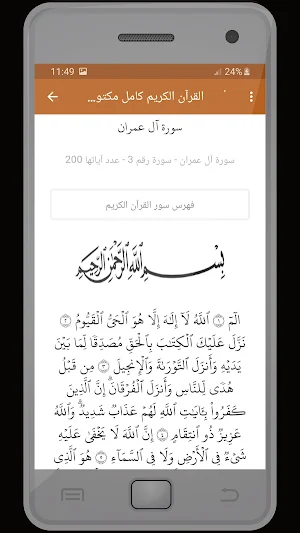 11:49
24%
القرآن الكريم كامل مكتو...
سورة آل عمران
سورة آل عمران - سورة رقم 3 - عدد آياتها 200
فهرس سور القرآن الكريم
بِسْمِ ٱللَّهِ ٱلرَّحْمَٰنِ ٱلرَّحِيمِ
الٓمٓ ۝١ ٱللَّهُ لَآ إِلَٰهَ إِلَّا هُوَ ٱلْحَىُّ ٱلْقَيُّومُ ۝٢
نَزَّلَ عَلَيْكَ ٱلْكِتَٰبَ بِٱلْحَقِّ مُصَدِّقًا لِّمَا بَيْنَ
يَدَيْهِ وَأَنزَلَ ٱلتَّوْرَىٰةَ وَٱلْإِنجِيلَ ۝٣ مِن قَبْلُ
هُدًى لِّلنَّاسِ وَأَنزَلَ ٱلْفُرْقَانَ ۗ إِنَّ ٱلَّذِينَ
كَفَرُوا۟ بِـَٔايَٰتِ ٱللَّهِ لَهُمْ عَذَابٌ شَدِيدٌ ۗ وَٱللَّهُ
عَزِيزٌ ذُو ٱنتِقَامٍ ۝٤ إِنَّ ٱللَّهَ لَا يَخْفَىٰ عَلَيْهِ
شَىْءٌ فِى ٱلْأَرْضِ وَلَا فِى ٱلسَّمَآءِ ۝٥ هُوَ ٱلَّذِى